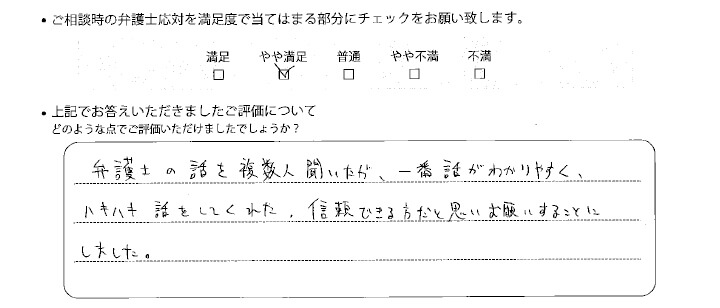 ・ご相談時の弁護士応対を満足度で当てはまる部分にチェックをお願い致します。
満足 やや満足 普通 やや不満 不満
□ ☑ □ □ □
・上記でお答えいただきましたご評価について
どのような点でご評価いただけましたでしょうか？
弁護士の話を複数人聞いたが、一番話がわかりやすく、
ハキハキ話をしてくれた。信頼できる方だと思いお願いすることに
しました。